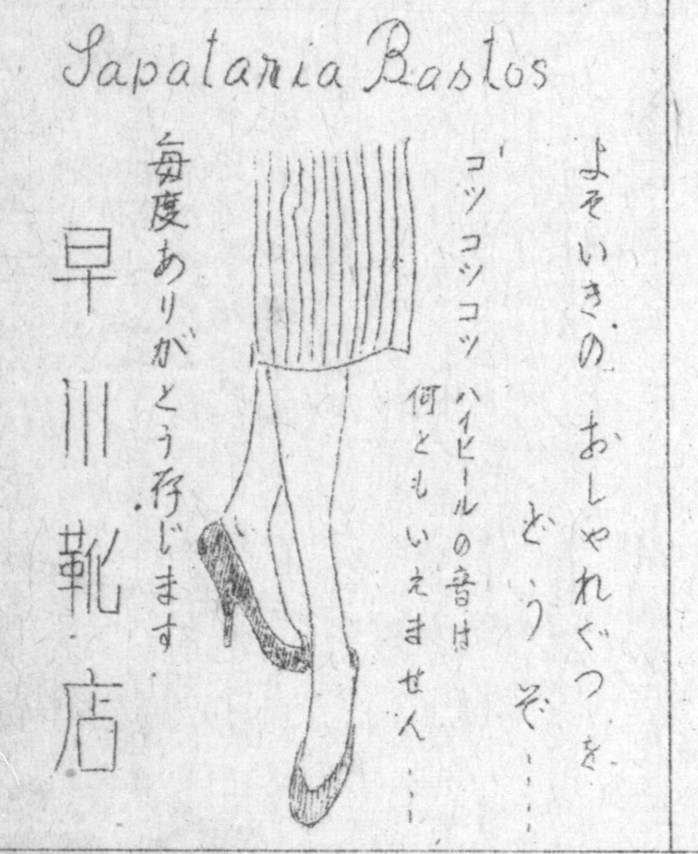 Sapataria Bastos
よそいきの おしゃれぐつを
どうぞ……
コツコツコツ ハイヒールの音は
何ともいえません……
毎度ありがとう存じます
早川靴店